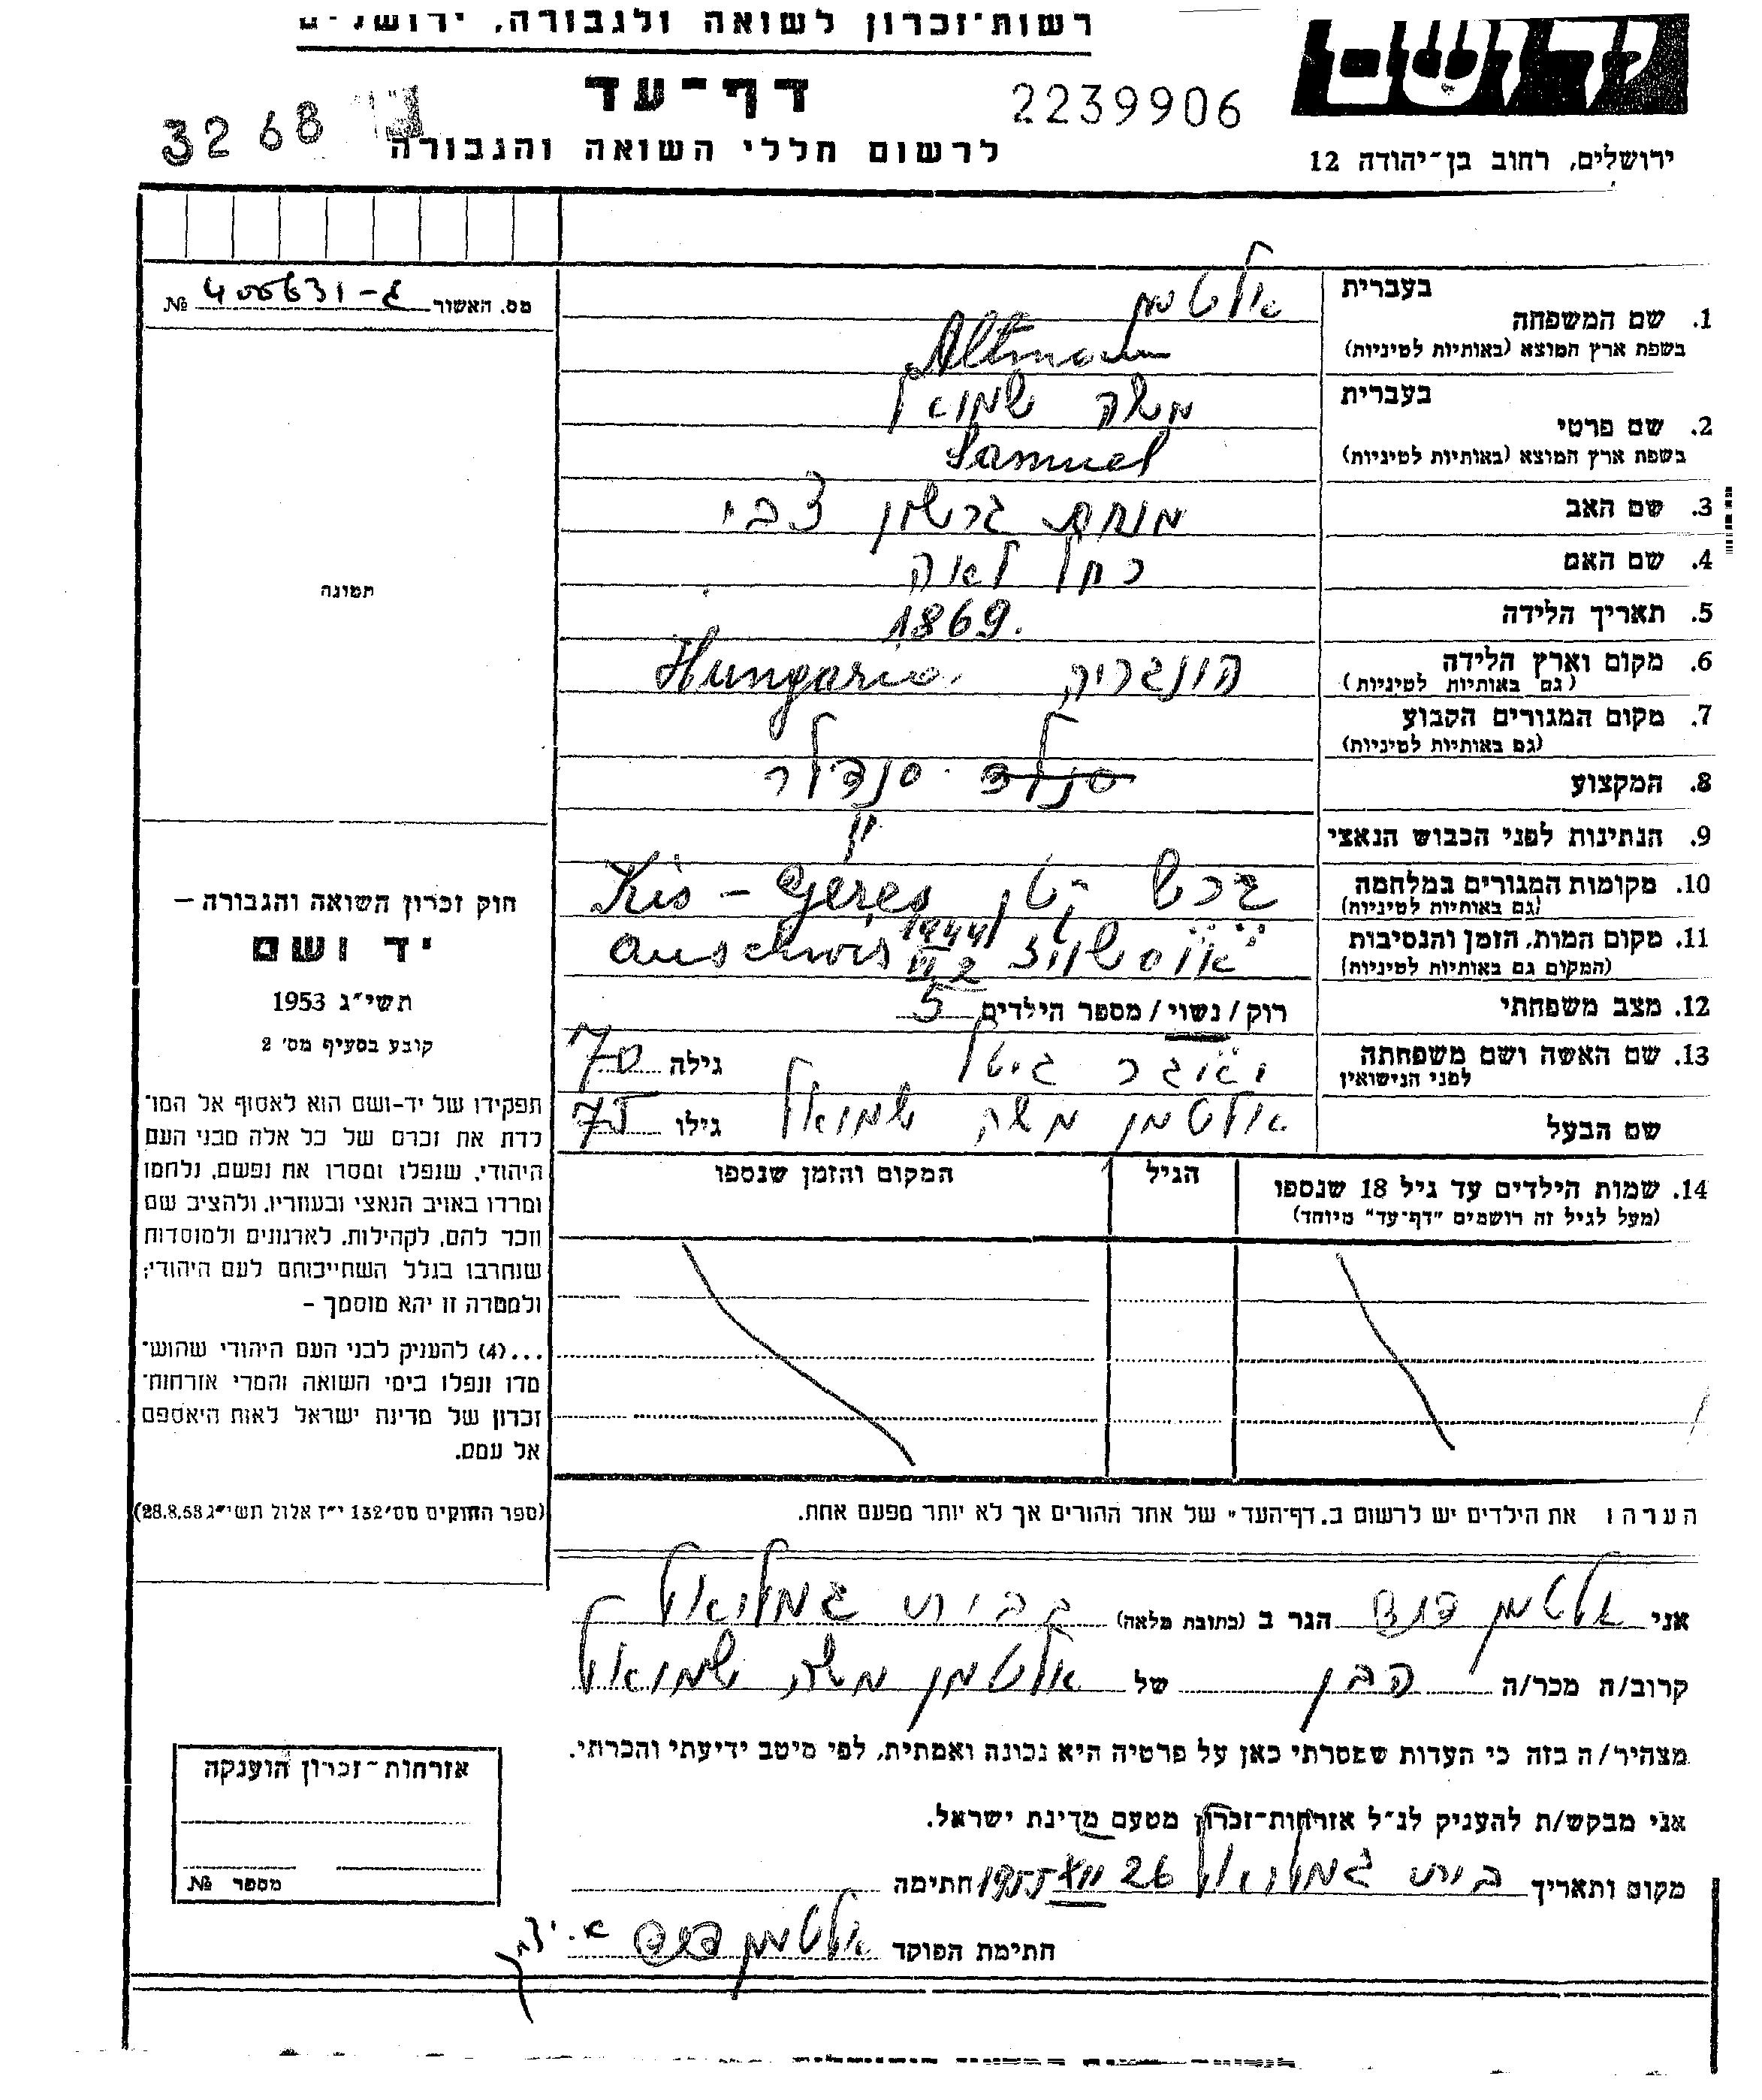 רשות־זכרון לשואה ולגבורה, ירושלים
יד ושם
דף־עד
2239906
3268
לרשום חללי השואה והגבורה
ירושלים, רחוב בן־יהודה 12
מס. האשור 400631-ג №
תמונה
1. שם המשפחה
בעברית אלטמן
בשפת ארץ המוצא (באותיות לטיניות) Altman
2. שם פרטי
בעברית משה שמואל
בשפת ארץ המוצא (באותיות לטיניות) Samuel
3. שם האב מנחם גרשון צבי
4. שם האם רחל לאה
5. תאריך הלידה 1869.
6. מקום וארץ הלידה הונגריה Hungaria
(גם באותיות לטיניות)
7. מקום המגורים הקבוע
(גם באותיות לטיניות)
8. המקצוע סנדלר
9. הנתינות לפני הכבוש הנאצי "
10. מקומות המגורים במלחמה Kis-Géres
(גם באותיות לטיניות)
11. מקום המות, הזמן והנסיבות אוסשויצ 1944 VI 2 Auschwis
(המקום גם באותיות לטיניות)
12. מצב משפחתי רוק/נשוי/מספר הילדים 5
13. שם האשה ושם משפחתה גיטל גילה 70
לפני הנישואין
שם הבעל אלטמן משה שמואל גילו 75
14. שמות הילדים עד גיל 18 שנספו הגיל המקום והזמן שנספו
(מעל לגיל זה רושמים "דף־עד" מיוחד)
הערה: את הילדים יש לרשום ב,דף־העד" של אחד ההורים אך לא יותר מפעם אחת.
חוק זכרון השואה והגבורה –
יד ושם
תשי"ג 1953
קובע בסעיף מס' 2
תפקידו של יד-ושם הוא לאסוף אל המו־
לדת את זכרם של כל אלה מבני העם
היהודי, שנפלו ומסרו את נפשם, נלחמו
ומרדו באויב הנאצי ובעוזריו, ולהציב שם
וזכר להם, לקהילות, לארגונים ולמוסדות
שנחרבו בגלל השתייכותם לעם היהודי;
ולמטרה זו יהא מוסמך –
...(4) להעניק לבני העם היהודי שהוש־
מדו ונפלו בימי השואה והמרי אזרחות־
זכרון של מדינת ישראל לאות היאספם
אל עמם.
(ספר החוקים מס' 132 י"ז אלול תשי"ג 28.8.53)
אני אלטמן הגר ב (כתובת מלאה) בבית גמליאל
קרוב/ה מכר/ה הבן של אלטמן משה שמואל
מצהיר/ה בזה כי העדות שמסרתי כאן על פרטיה היא נכונה ואמתית, לפי מיטב ידיעתי והכרתי.
אני מבקש/ת להעניק לנ"ל אזרחות־זכרון מטעם מדינת ישראל.
מקום ותאריך בית גמליאל 26 XII 1955 חתימה
חתימת הפוקד אלטמן
אזרחות־זכרון הוענקה
מספר №